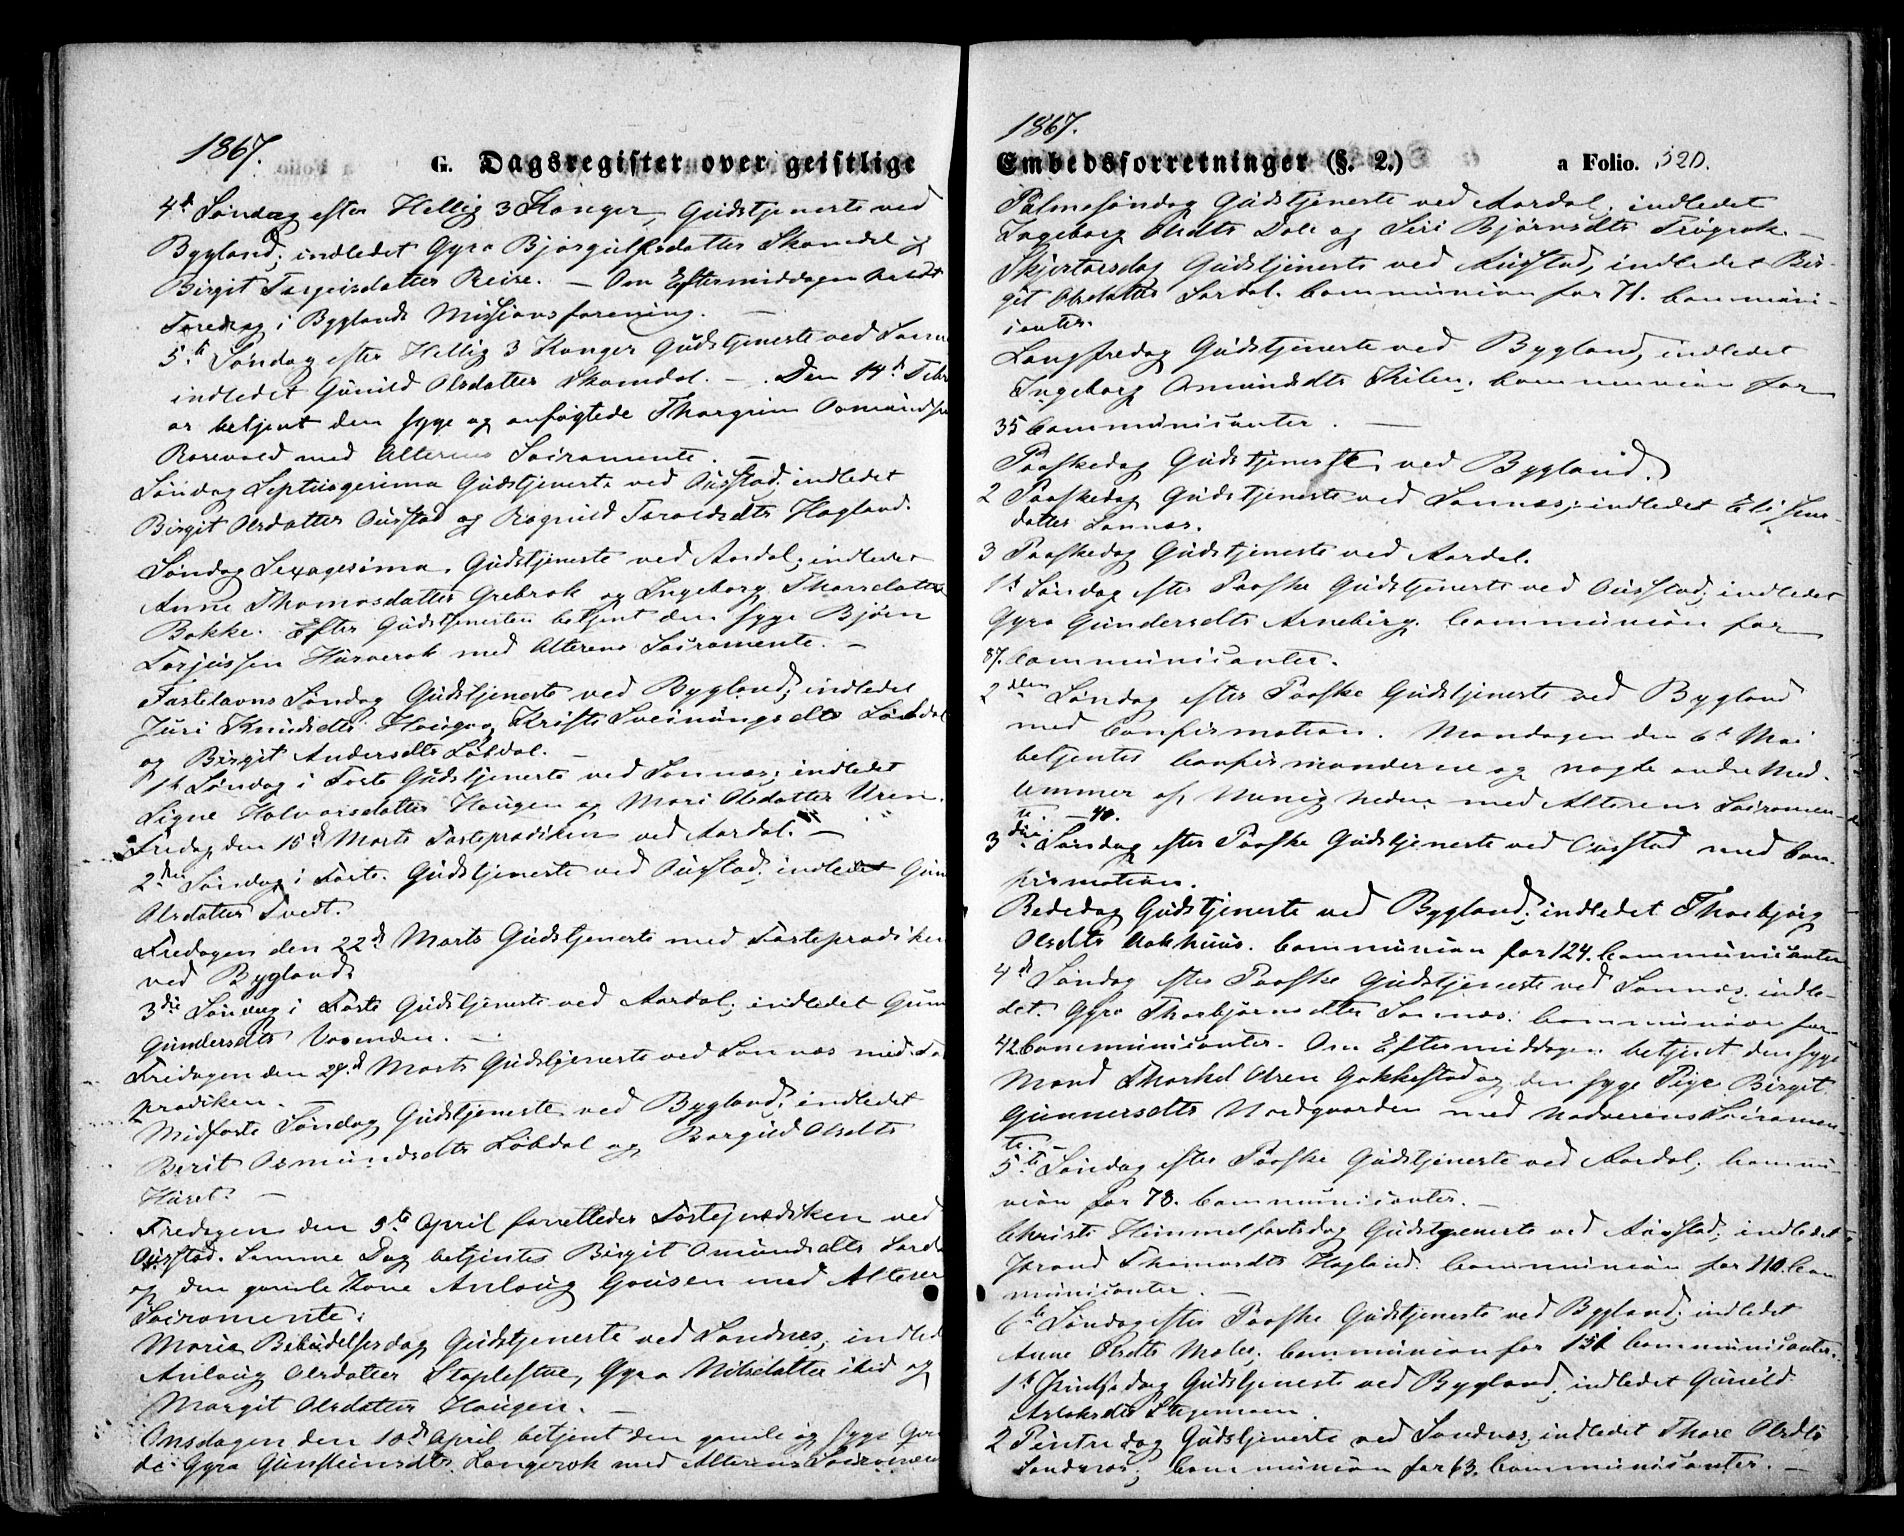 1867.
G. Dagsregister over geistlige
4de Søndag efter Hellig 3 Konger, Gudstjeneste ved
Bygland; indledet Gyro Bjørgulfsdatter Skomdal og
Birgit Targeisdatter Reire. — Om Eftermiddagen holdt
Foredrag i Byglands Missionsforening. —
5te Søndag efter Hellig 3 Konger Gudstjeneste ved Sonn
indledet Gunild Olsdatter Skomdal. — Den 14de Febr
er betjent den syge og anfægtede Thorgrim Osmundse
med Alterens Sacramente. —
Søndag Septuagesima Gudstjeneste ved Ousstad; indledet
Birgit Olsdatter Ousstad og Rognild Taraldsdtr Hagland.
Søndag Sexagesima, Gudstjeneste ved Aardal; indledet
Anne Thomasdatter Grebrok og Ingeborg Thoresdatter
Bakke. Efter Gudstjenesten betjent den syge Bjørn
Torjussen Hurverok med Alterens Sacramente. —
Fastelavns Søndag Gudstjeneste ved Bygland; indledet
Juri Knudsdtr Hougen, Kristi Sveinungsdtr Lidal
og Birgit Andersdtr Lobdal. —
1ste Søndag i Faste Gudstjeneste ved Sonnæs; indledet
Signe Halvorsdatter Hougen og Mari Olsdatter Uren.
Fredag den 15de Marts Fasteprædiken ved Aardal. —
2den Søndag i Faste. Gudstjeneste ved Ousstad; indledet Gun
Olsdatter Tvedt.
Fredagen den 22de Marts Gudstjeneste med Fasteprædiken
ved Bygland.
3die Søndag i Faste Gudstjeneste ved Aardal; indledet Gun
Gundersdtr Vasenden. —
Fredagen den 29de Marts Gudstjeneste ved Sonnæs med Fa
prædiken. —
Midfaste Søndag Gudstjeneste ved Bygland; indledet
Berit Osmundsdtr Lobdal og Borgild Olsdtr
Huset. —
Fredagen den 5te April forrettedes Fasteprædiken ved
Ousstad. Samme Dag betjentes Birgit Osmundsdtr Sard
og den gamle Kone Anlaug Gousen med Alteren
Sacramente.
Mariæ Bebudelsesdag Gudstjeneste ved Sandnes; indled
Anlaug Olsdatter Staplestue, Gyro Nilsdatter ibid og
Margit Olsdatter Hougen. —
Onsdagen den 10de April betjent den gamle og syge
Gyro Gunsteinsdtr Langerok med Alterens Sacramen
1867.
Embedsforretninger (§. 2.) a Folio. 320.
Palmesøndag Gudstjeneste ved Aardal; indledet
Ingeborg Olsdtr Dale og Siri Bjørnsdtr Frøyrok. —
Skjertorsdag Gudstjeneste ved Ausstad, indledet Bir-
git Olsdatter Sardal. Communion for 71. Communi-
canter.
Langfredag Gudstjeneste ved Bygland, indledet
Ingeborg Osmundsdtr Kilen; Communion for
35 Communicanter. —
Paaskedag Gudstjeneste ved Bygland.
2 Paaskedag Gudstjeneste ved Sonnæs; indledet Eli Jens-
datter Sonnæs.
3 Paaskedag Gudstjeneste ved Aardal.
1ste Søndag efter Paaske Gudstjeneste ved Ousstad; indledet
Gyro Gundersdtr Arneberg. Communion for
87. Communicanter.
2den Søndag efter Paaske Gudstjeneste ved Bygland
med Confirmation. Mandagen den 6te Mai
betjentes Confirmanderne og nogle andre Med-
lemmer af Menigheden med Alterens Sacramen-
te. — 40.
3die Søndag efter Paaske Gudstjeneste ved Ousstad med Con-
firmation.
Bededag Gudstjeneste ved Bygland; indledet Thorbjørg
Olsdtr Nokhuus. Communion for 124. Communicanter
4de Søndag efter Paaske Gudstjeneste ved Sonnæs; indle-
det. Gyro Thorbjørnsdtr Sonnæs; Communion for
42 Communicanter. Om Eftermiddagen betjent den syge
Mand Thorkel Olsen Gakkestad og den syge Pige Birgit
Gunnersdtr Nordgaarden med Nadverens Sacramen-
te. —
5te Søndag efter Paaske Gudstjeneste ved Aardal; Commu-
nion for 78. Communicanter. —
Christi Himmelfartsdag Gudstjeneste ved Ausstad; indledet
Jorand Thomasdtr Hagland. Communion for 110. Com
municanter. —
6te Søndag efter Paaske Gudstjeneste ved Bygland; indledet
Anne Olsdtr Moler; Communion for 151 Communicanter.
1ste Pintsedag Gudstjeneste ved Bygland; indledet Gunild
Aslaksdtr Stegemoen.
2 Pintsedag Gudstjeneste ved Sandnæs; indledet Thore Olsdtr
Sandnæs; Communion for 63. Communicanter. —